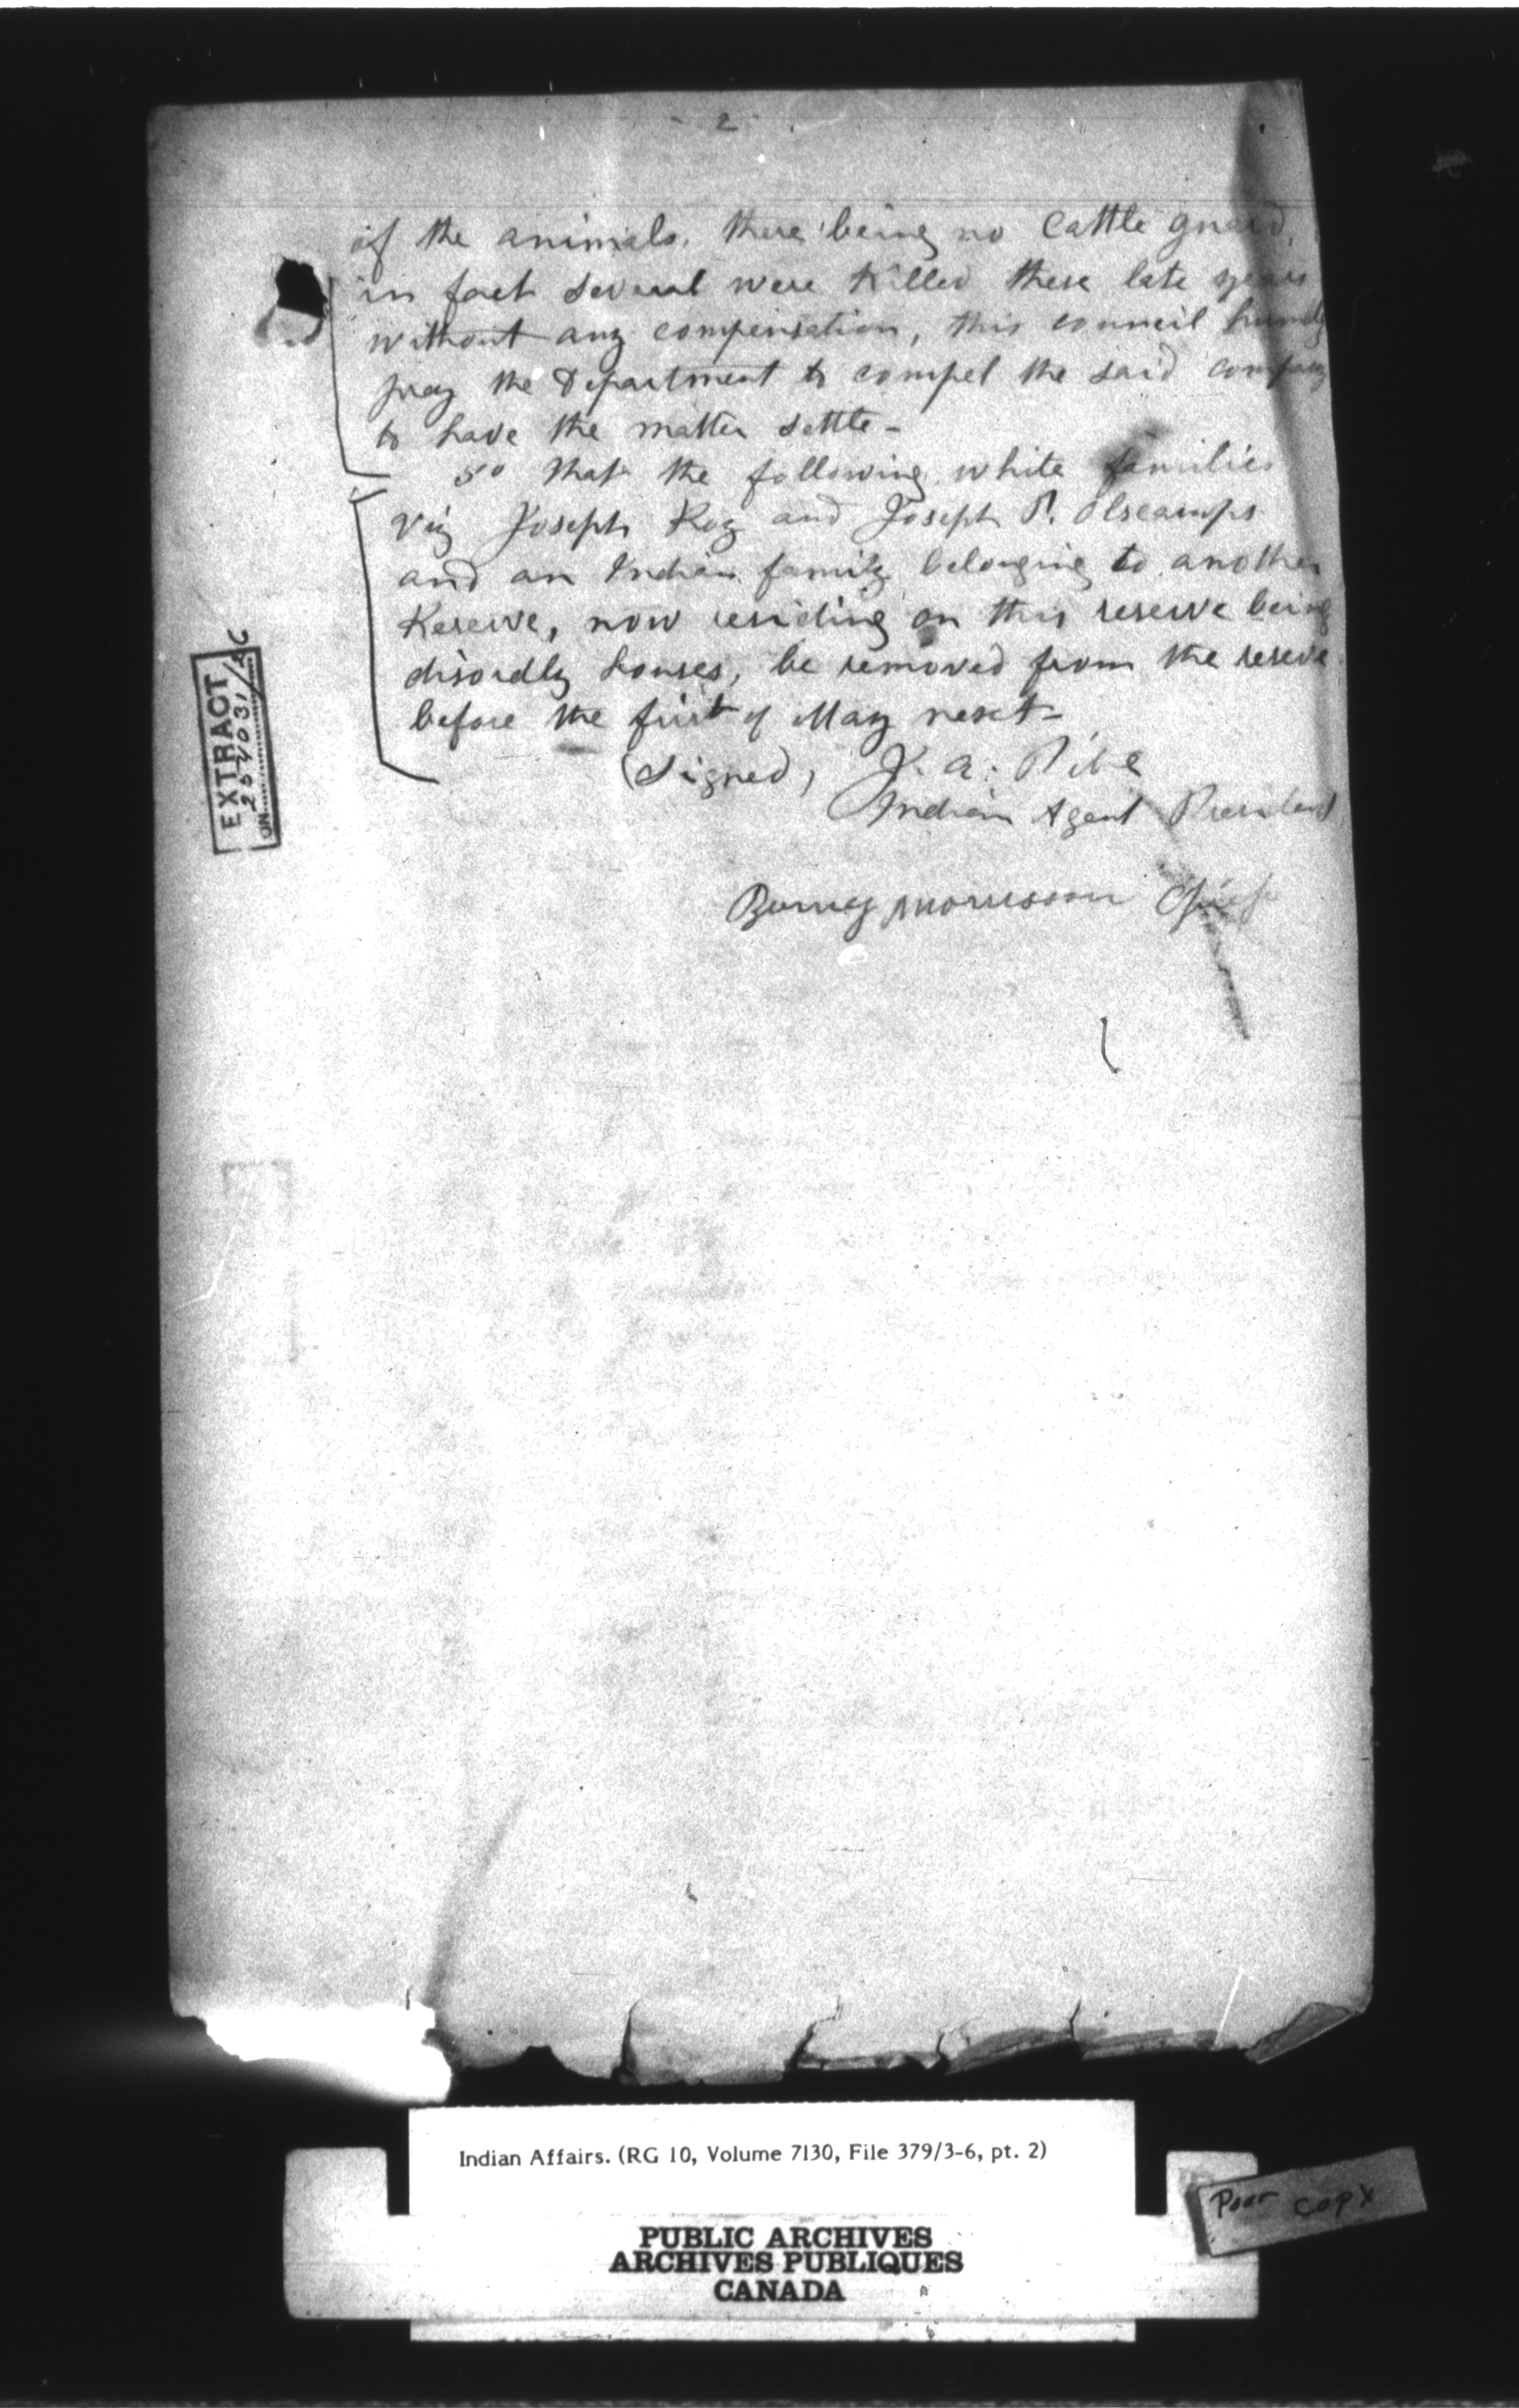 2
of the animals. there being no Cattle guard,
in fact several were killed these late years
without any compensation, this council humbly
pray the Department to compel the said company
to have the matter settle -
5o that the following white families
viz Joseph Roy and Joseph P. Olscamps
and an Indian family belonging to another
Reserve, now residing on this reserve being
disordly houses, be removed from the reserve
before the first of May next -
(Signed), J. A. Pitre
Indian Agent President
Barney Morrisson Chief
EXTRACT
ON
Indian Affairs. (RG 10, Volume 7130, File 379/3-6, pt. 2)
PUBLIC ARCHIVES
ARCHIVES PUBLIQUES
CANADA
Poor copy